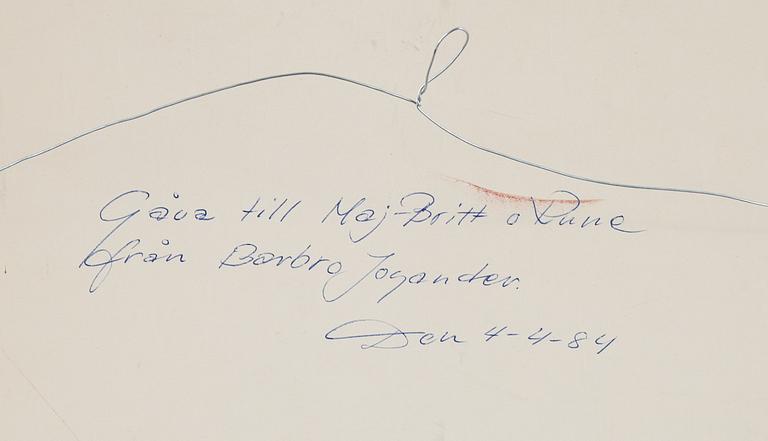 Gåva till Maj-Britt o Rune
från Barbro Jogander.
Den 4-4-84